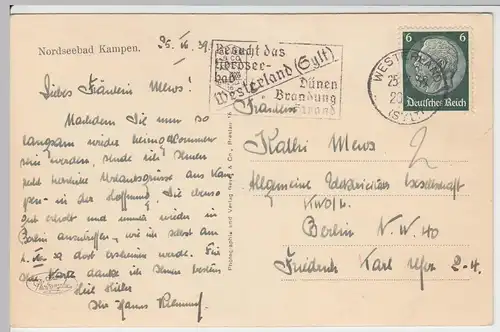 Nordseebad Kampen.
25. VI. 39.
Liebes Fräulein Mews!
Nachdem Sie nun so
langsam wieder heimgekommen
sein werden, sende ich Ihnen
recht herzliche Urlaubsgrüsse aus Kam
pen - in der Hoffnung, Sie ebenso
gut erholt und munter wieder in
Berlin anzutreffen, wie ich selbst am
dort erscheinen werde. Für
Ihre Karte danke ich Ihnen bestens
Heil Hitler
Ihr Hanns
Photographie und Verlag
Besucht das
Nordsee-
bad
Westerland (Sylt)
Dünen
Brandung
Strand
WESTERLAND
25.
20
(SYLT)
6 6
Deutsches Reich
Fräulein
Kathi Mews
2
Allgemeine Elektricitäts Gesellschaft
Berlin N.W. 40
Friedrich Karl Ufer 2-4.